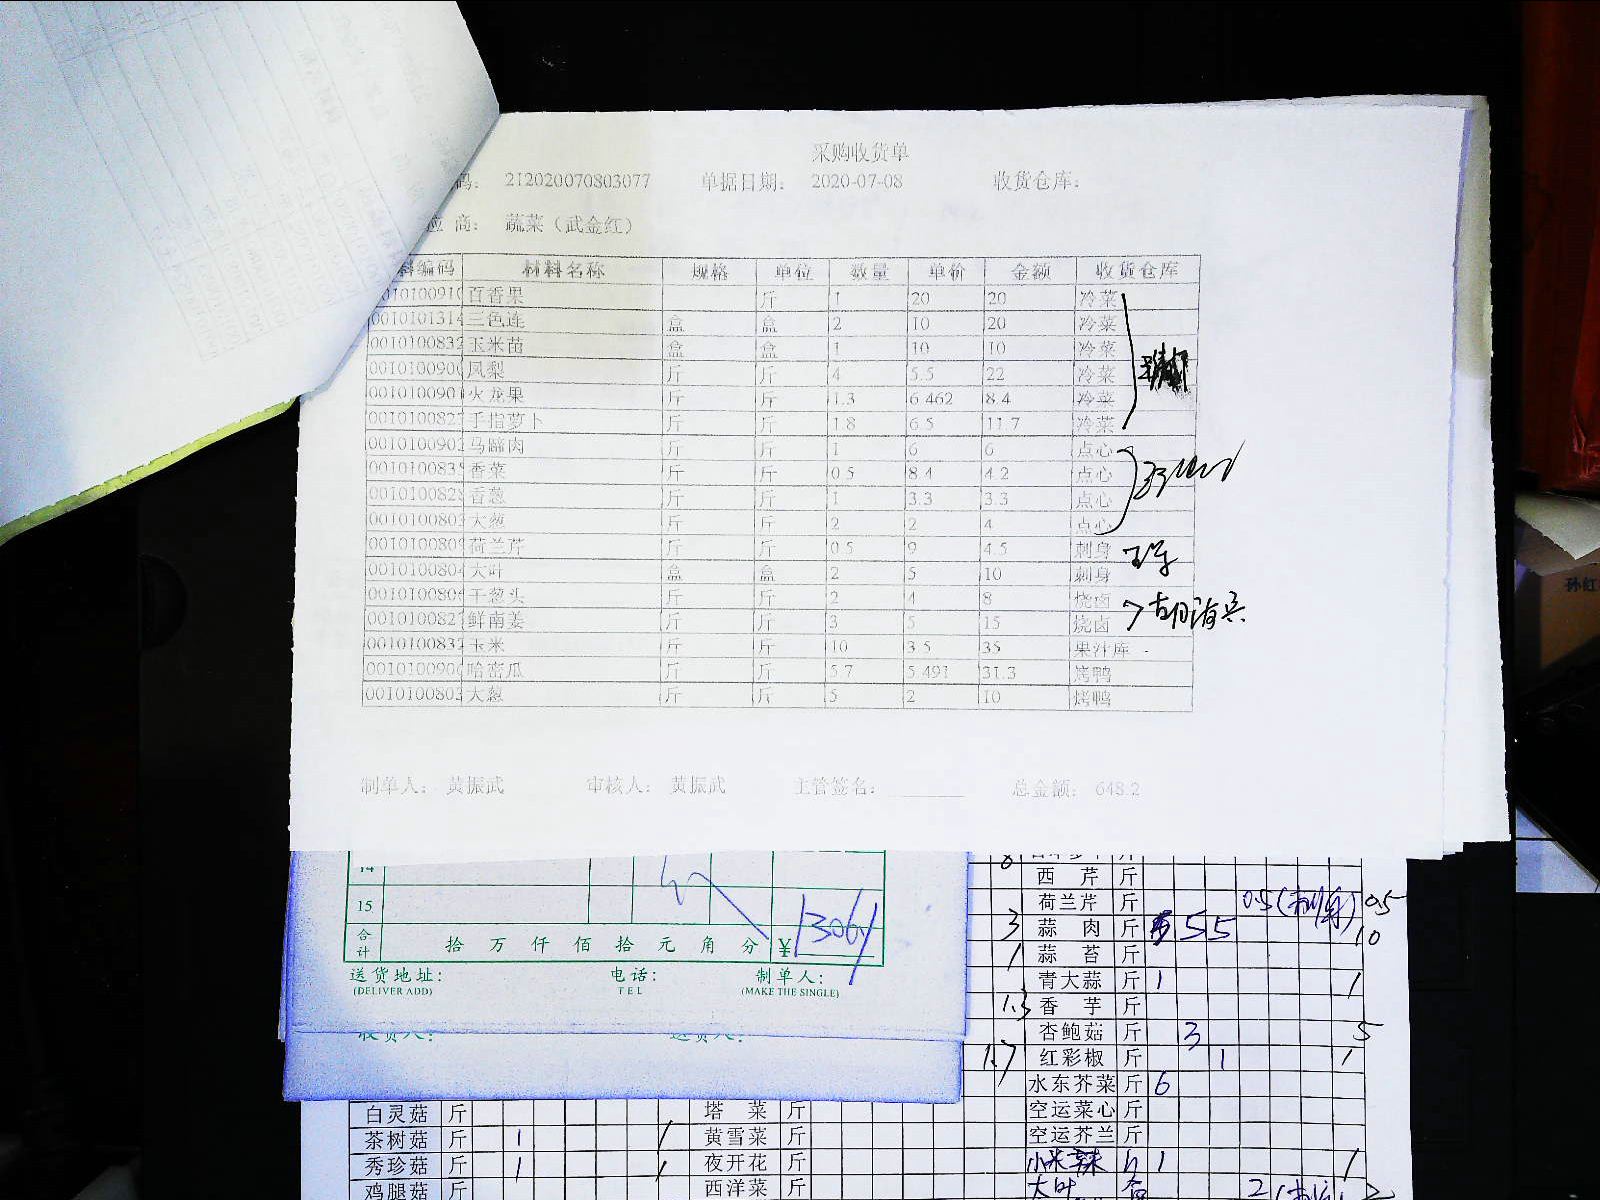 采购收货单
码： 212020070803077 单据日期： 2020-07-08 收货仓库：
应 商： 蔬菜（武金红）
料编码 材料名称 规格 单位 数量 单价 金额 收货仓库
百香果 斤 1 20 20 冷菜
0010101314 三色连 盒 盒 2 10 20 冷菜
0010100832 玉米苗 盒 盒 1 10 10 冷菜
001010090 凤梨 斤 斤 4 5.5 22 冷菜
001010090 火龙果 斤 斤 1.3 6.462 8.4 冷菜
001010082 手指萝卜 斤 斤 1.8 6.5 11.7 冷菜
001010090 马蹄肉 斤 斤 1 6 6 点心
001010083 香菜 斤 斤 0.5 8.4 4.2 点心
001010082 香葱 斤 斤 1 3.3 3.3 点心
001010080 大葱 斤 斤 2 2 4 点心
001010080 荷兰芹 斤 斤 0.5 9 4.5 刺身
001010080 大叶 盒 盒 2 5 10 刺身
001010080 干葱头 斤 斤 2 4 8 烧卤
001010082 鲜南姜 斤 斤 3 5 15 烧卤
001010083 玉米 斤 斤 10 3.5 35 果汁库
001010090 哈密瓜 斤 斤 5.7 5.491 31.3 烤鸭
001010080 大葱 斤 斤 5 2 10 烤鸭
制单人： 黄振武 审核人： 黄振武 主管签名： 总金额： 648.2
14
15
合计 拾 万 仟 佰 拾 元 角 分 ¥
送货地址： 电话： 制单人：
(DELIVER ADD) TEL (MAKE THE SINGLE)
收货人： 送货人：
8
西 芹 斤
荷兰芹 斤 0.5(刺身) 0.5
3 蒜 肉 斤 5 5 10
1 蒜 苔 斤
青大蒜 斤 1 1
1.3 香 芋 斤
杏鲍菇 斤 3 5
1.7 红彩椒 斤 1 1
水东芥菜 斤 6
白灵菇 斤 塔 菜 斤 空运菜心 斤
茶树菇 斤 1 1 黄雪菜 斤 空运芥兰 斤
秀珍菇 斤 1 1 夜开花 斤 小米辣 斤 1 1
鸡腿菇 斤 西洋菜 斤 大叶 盒 2 2
孙红